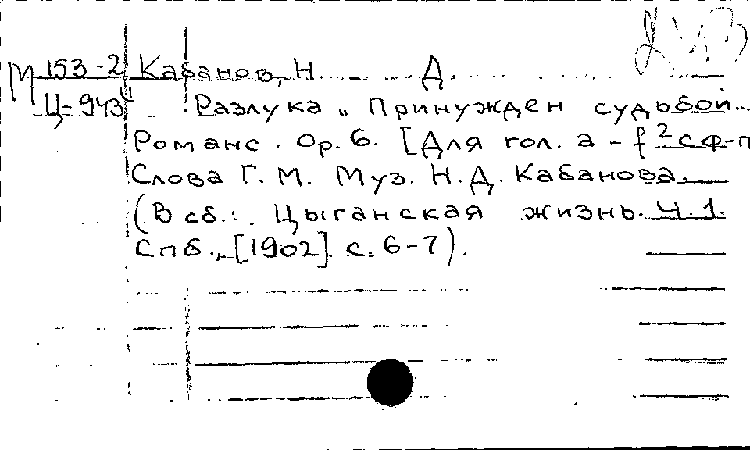 М 153-2 Кабанов, Н. Д.
Ц-943 Разлука „ Принужден судьбой..
Романс. Ор. 6. [Для гол. a - f² с ф-п
Слова Г. М. Муз. Н. Д. Кабанова.
(В сб.: Цыганская жизнь. Ч. 1.
Спб., [1902]. с. 6-7).